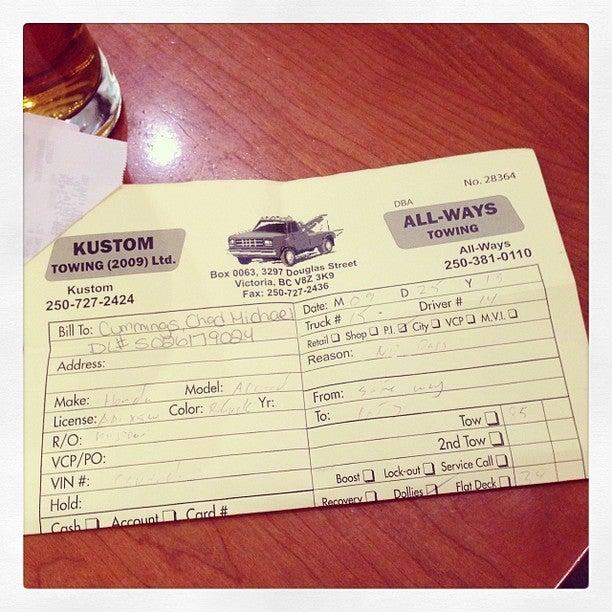 No. 28364
DBA
KUSTOM
TOWING (2009) Ltd.
ALL-WAYS
TOWING
Kustom
250-727-2424
Box 0063, 3297 Douglas Street
Victoria, BC V8Z 3K9
Fax: 250-727-2436
All-Ways
250-381-0110
Bill To: Cummings, Chad Michael
DL# 5086179024
Address:
Make: Honda Model:
License: Color: Yr:
R/O:
VCP/PO:
VIN #:
Hold:
Cash Account Card #
Date: M 09 D 25 Y 13
Truck # 15 Driver # 14
Retail Shop P.I. City VCP M.V.I.
Reason: No Pass
From:
To:
Tow 85
2nd Tow
Boost Lock-out Service Call
Recovery Dollies Flat Deck